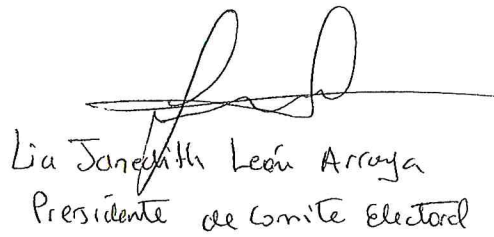 Lia Janedith León Arroya
Presidente de Comite Electoral